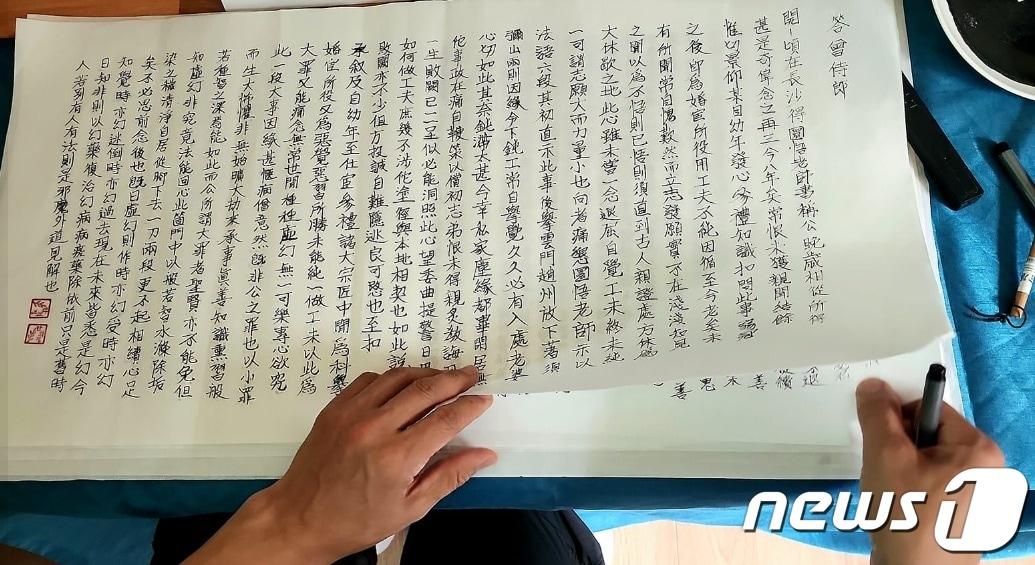 答曾侍郎
開頃在長沙得圜悟老師書稱公晩歲相從所得
甚是奇偉念之再三今八年矣常恨未獲親聞緒餘
惟切景仰某自幼年發心參禮知識扣問此事弱
之後卽爲婚宦所役用工夫不純因循至今老矣未
有所聞常自愧歎然而立志發願實不在淺淺知見
之間以爲不悟則已悟則須直到古人親證處方爲
大休歇之地此心雖未嘗一念退屈自覺工夫終未純
一可謂志願大而力量小也向者痛懇圜悟老師示以
法語六段其初直示此事後擧雲門趙州放下著須
彌山兩則因緣令下鈍工常自擧覺久久必有入處老婆
心切如此其奈鈍滯太甚今幸私家塵緣都畢閑居無
佗事政在痛自鞭策以償初志第恨未得親炙敎誨
一生敗闕已一一呈似必能洞照此心望委曲提警日用
如何做工夫庶幾不涉佗塗徑與本地相契也如此說
敗闕亦不少但方投誠自難隱逃良可愍也至扣
承敍及自幼年至仕宦參禮諸大宗匠中間爲科擧
婚宦所役又爲惡覺惡習所勝未能純一做工夫以此爲
大罪又能痛念無常世間種種虛幻無一可樂專心欲究
此一段大事因緣甚愜病僧意然旣
非公之罪也以小罪
而生大怖懼非無始曠大劫來承事眞善知識熏習般
若種智之深焉能如此而公所謂大罪者聖賢亦不能免但
知虛幻非究竟法能回心此箇門中以般若智水滌除垢
染之穢淸淨自居從脚下去一刀兩段更不起相續心足
矣不必思前念後也旣曰虛幻則作時亦幻受時亦幻
知覺時亦幻迷倒時亦幻過去現在未來皆悉是幻今
日知非則以幻藥復治幻病病瘥藥除依前只是舊時
人若別有人有法則是邪魔外道見解也
news1